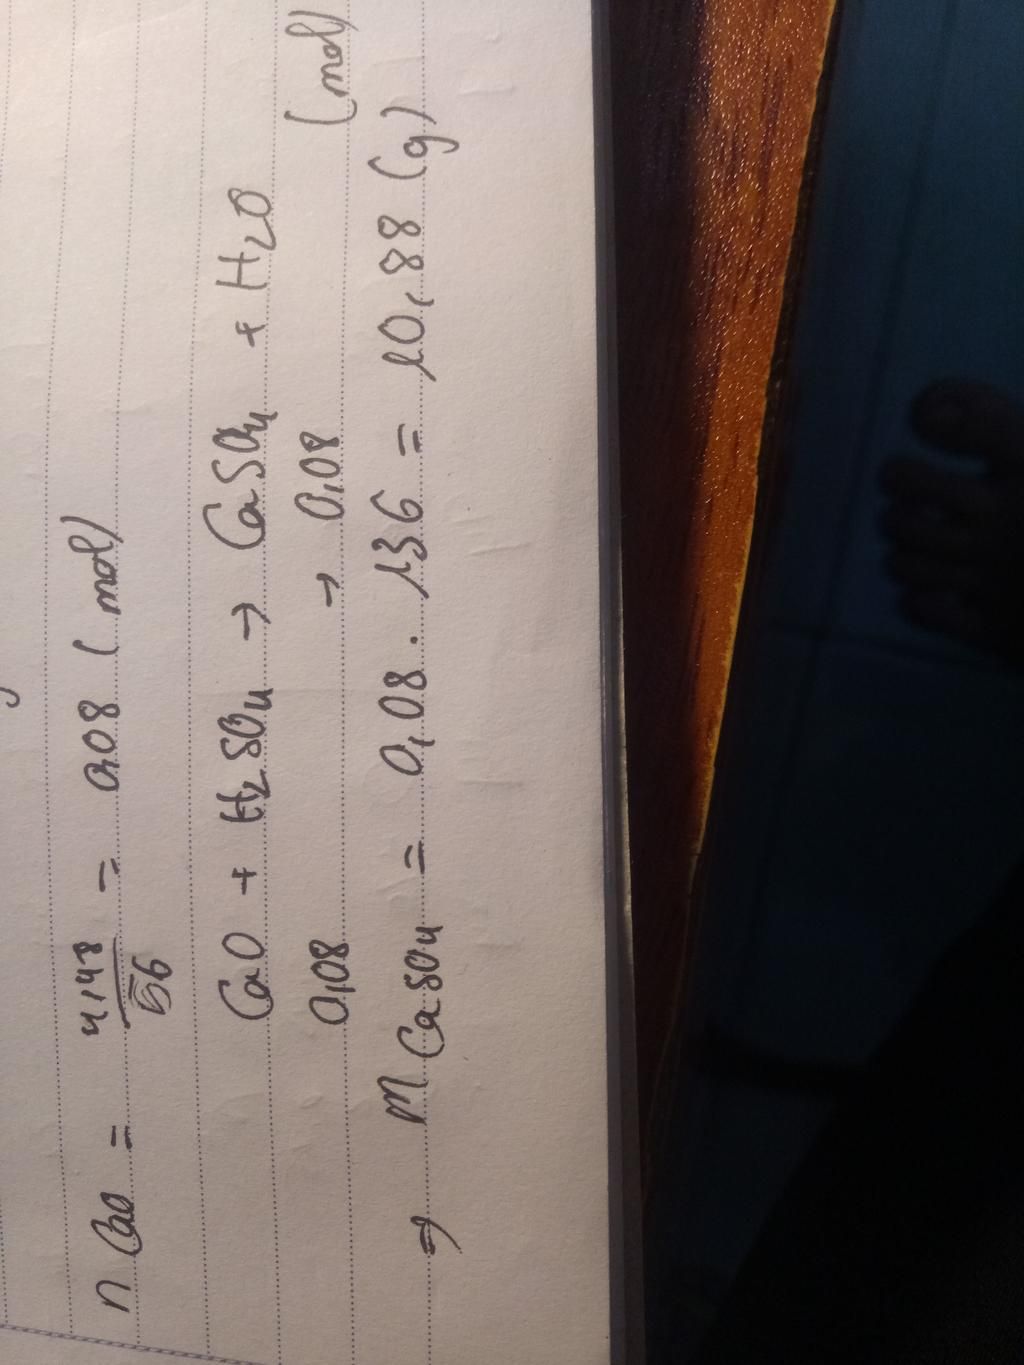 n CaO = 4,48/56 = 0,08 (mol)
CaO + H2SO4 → CaSO4 + H2O
0,08 → 0,08 (mol)
⇒ m CaSO4 = 0,08 . 136 = 10,88 (g)